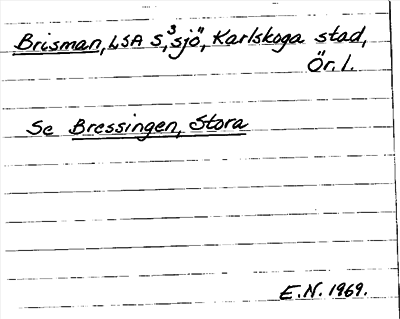 Brisman, LSA S,³sjö, Karlskoga stad,
Ör. l.
Se Bressingen, Stora
E.N. 1969.